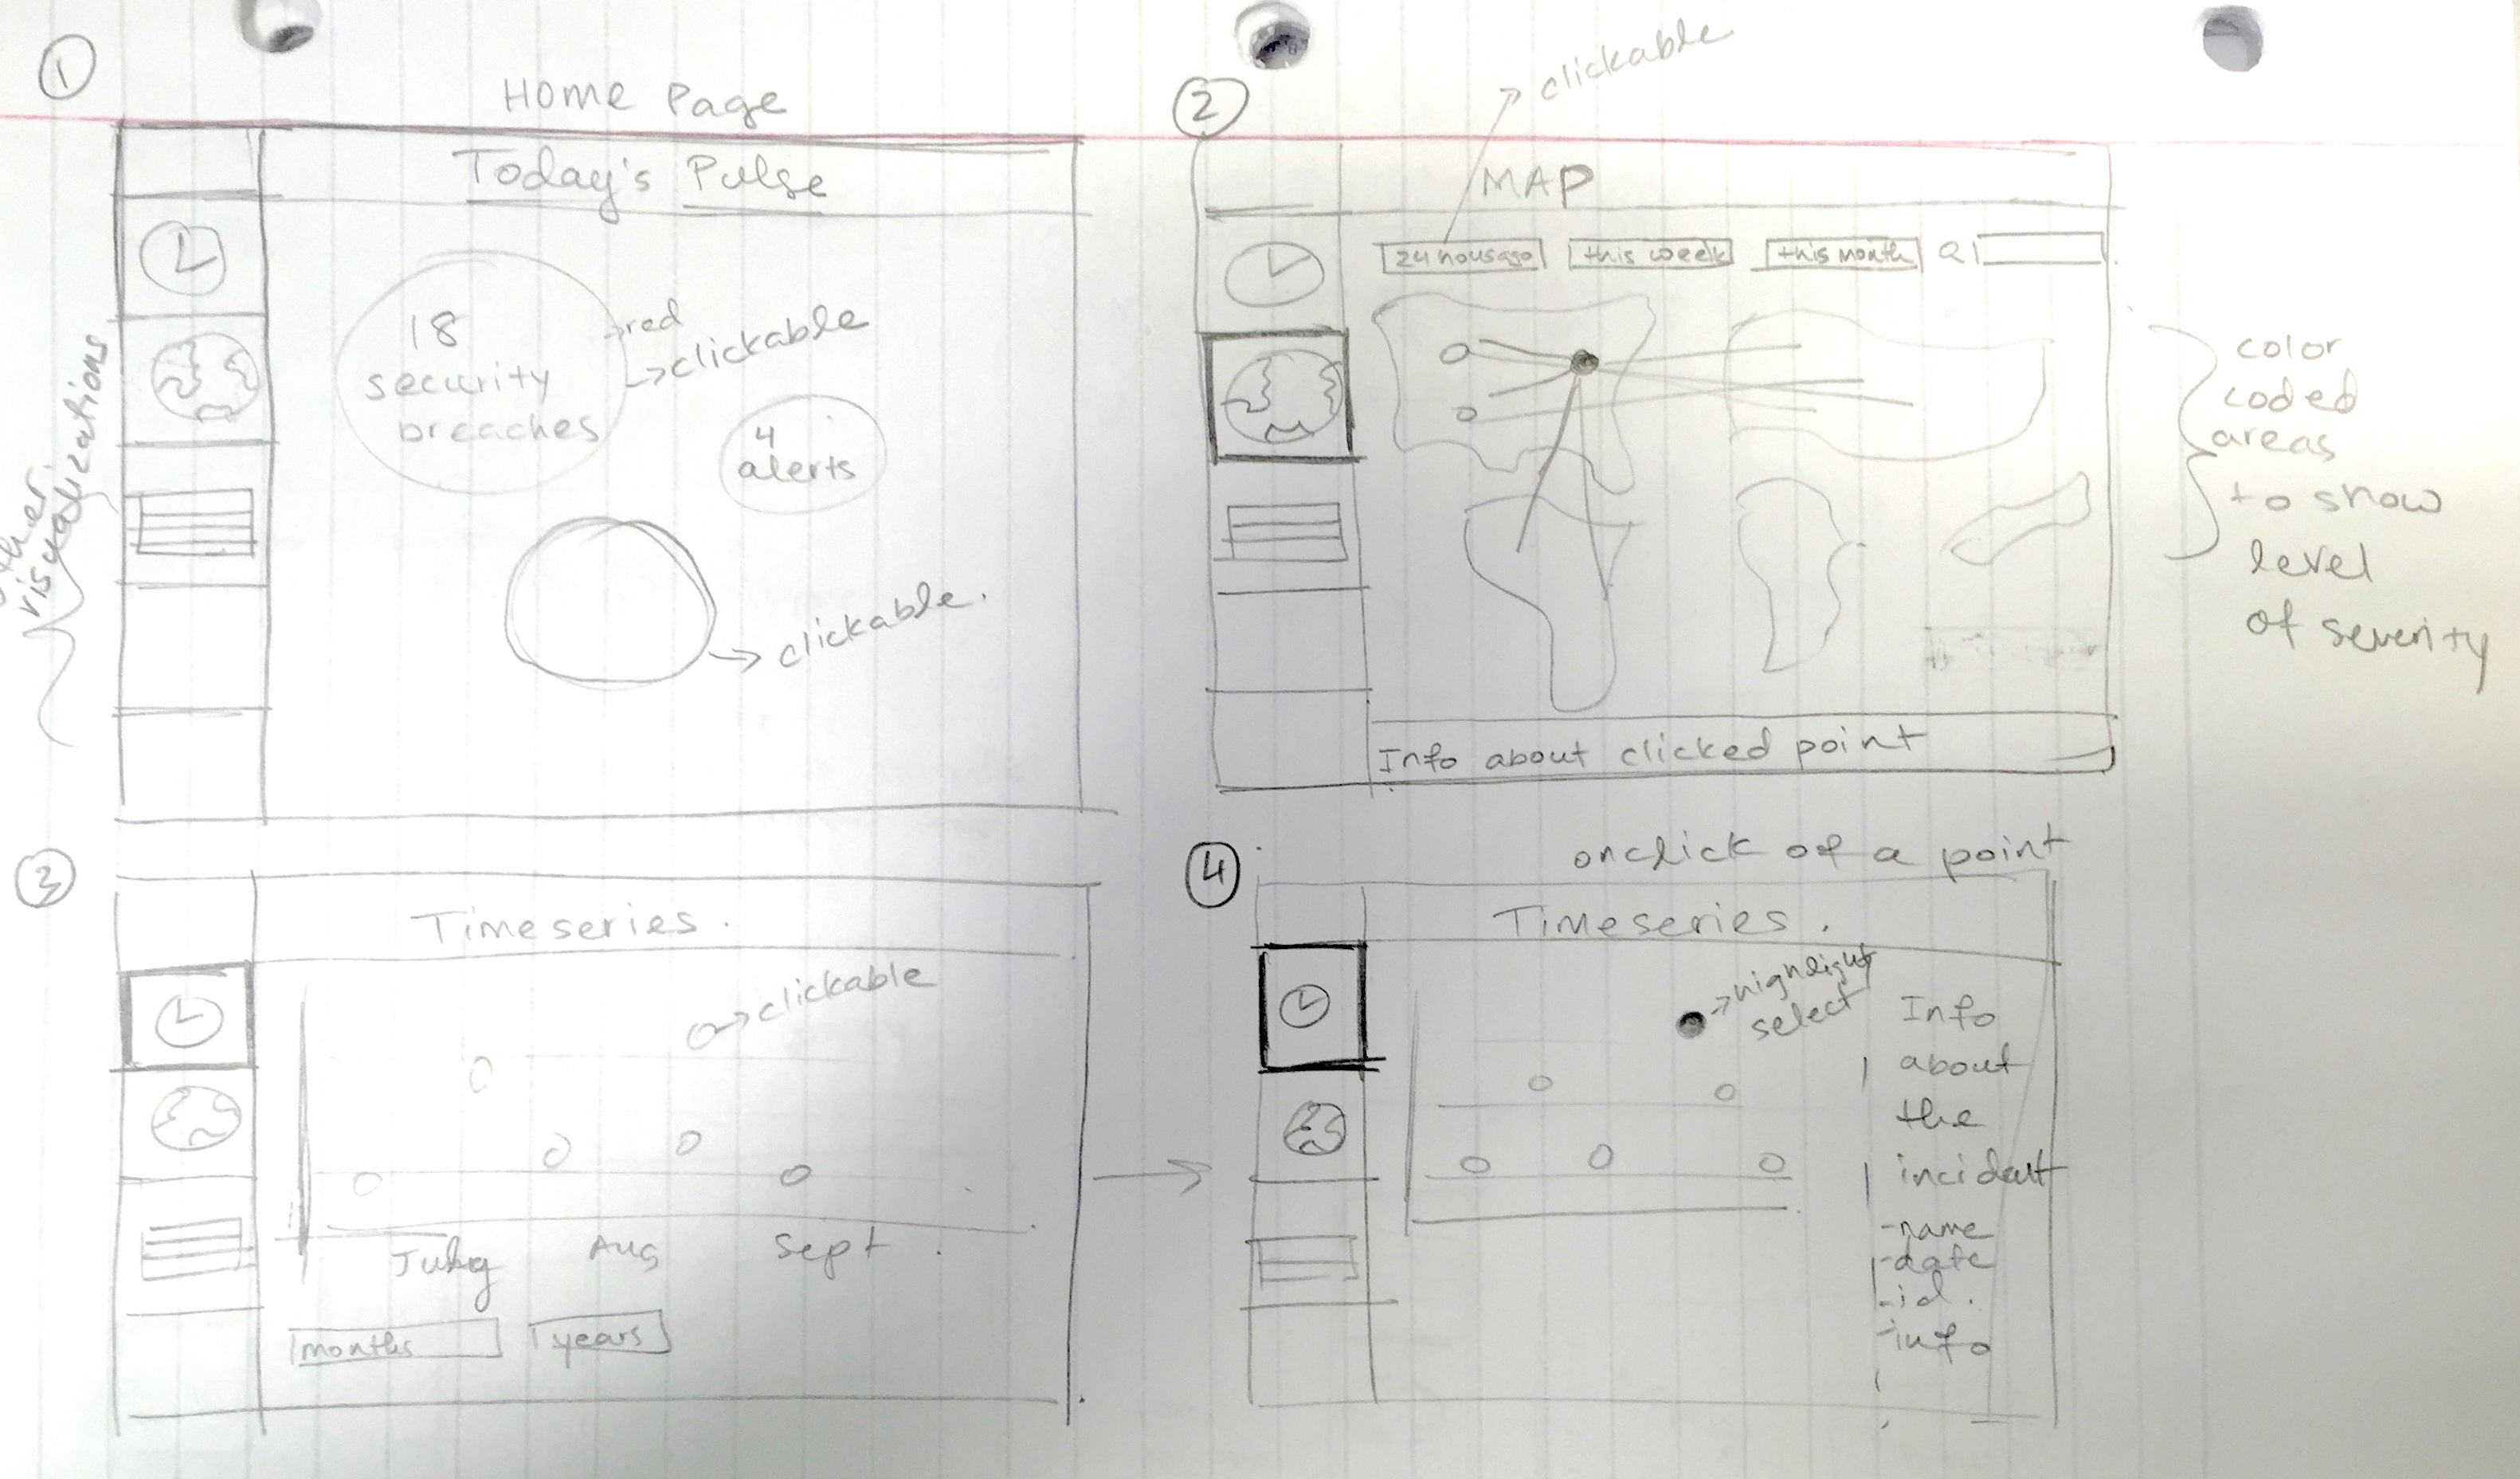 1
Home Page
Today's Pulse
18
security
breaches
red
clickable
4
alerts
clickable.
other
visualizations
2
clickable
MAP
24 housago
this week
this month
color
coded
areas
to show
level
of severity
Info about clicked point
3
Timeseries.
clickable
July
Aug
Sept
months
years
4
onclick of a point
Timeseries.
highlight
select
Info
about
the
incident
-name
-date
-id.
-info